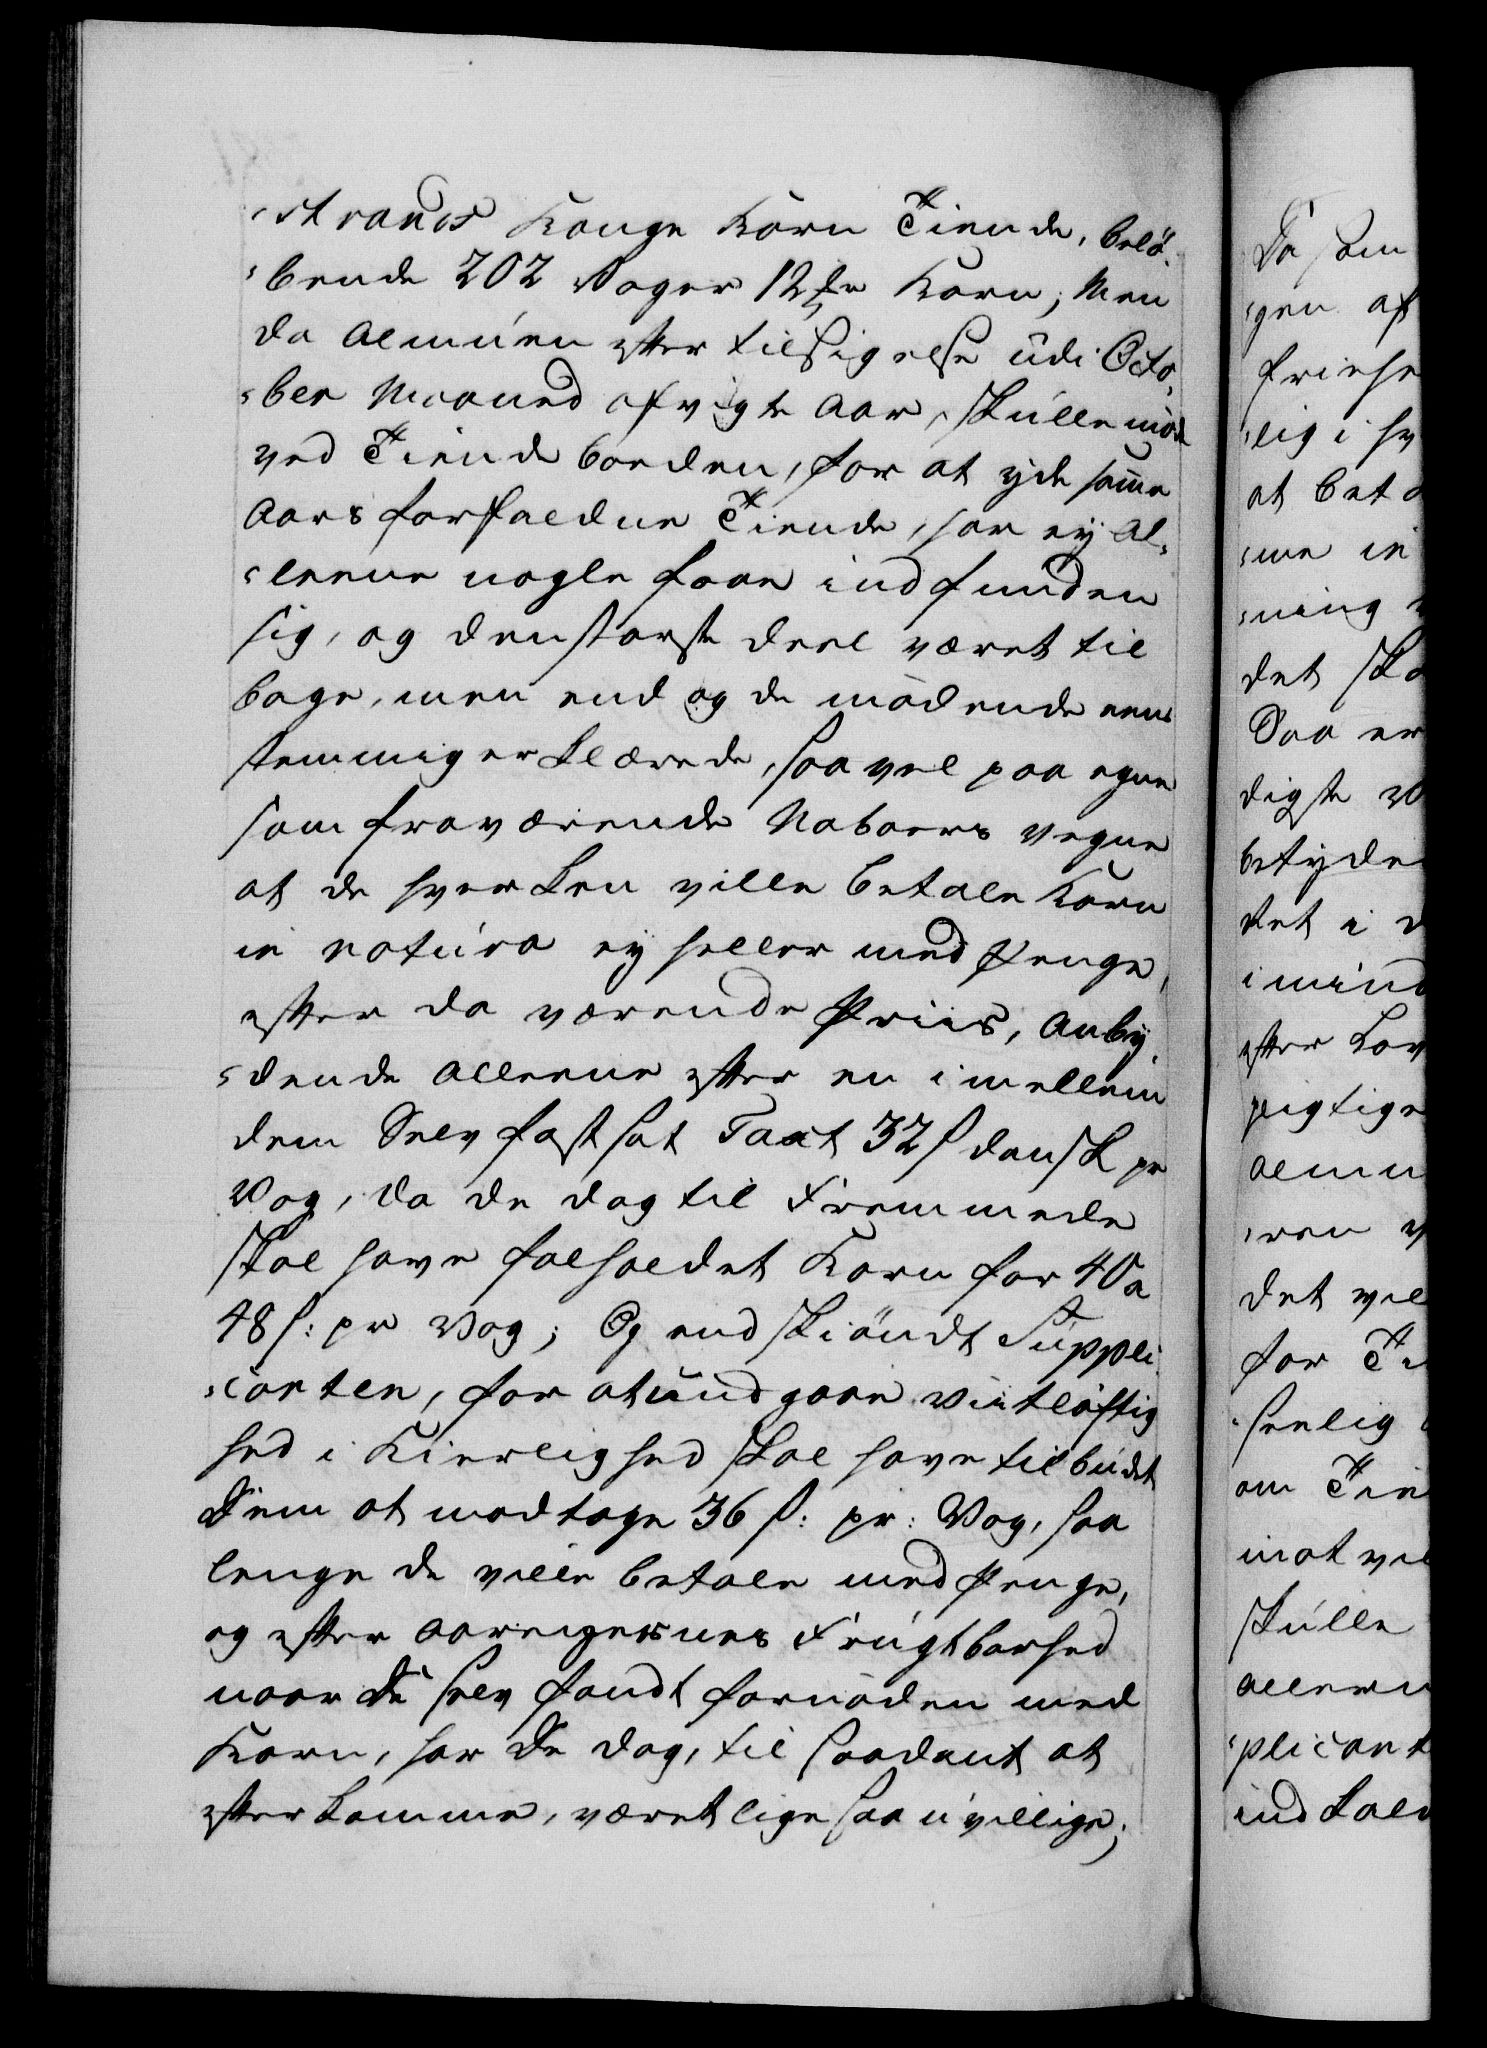 strands Konge Korn Tiende, belö-
bende 202 Voger 12 ℔r Korn; Men
da Almúen efter tilsigelse údi Octo-
ber Maaned afvigte Aar, skúlle möde
ved Tiende boeden, for at yde samme
Aars forfaldne Tiende, har ey al-
leene nogle faae indfunden
sig, og den störste deel været til
bage, men end og de mödende eens
temmig erklærede, saa vel paa egne
som fraværende Naboers vegne
at de hverken ville betale Korn
in natúra ey heller med Penge,
efter da værende Priis, anby-
dende alleene efter en imellem
dem Selv fastsat Taxt 32 s dansk pr
Vog, da de dog til Fremmede
skal have falholdet Korn for 40 a
48 s: pr Vog; Og endskiöndt Súppli-
canten, for at úndgaae Viitlöftig
hed i Kierlighed skal have tilbúdet
Dem at modtage 36 s: pr: Vog, saa
lenge de ville betale med Penge,
og efter Aaringernes Frúgtbarhed
naar De selv fandt fornöden med
Korn, har De dog, til saadant at
efterkomme, været lige saa úvillige;
Da som
gen af
friehe
lig i hv
at beta
me in
ning
det ska
Saa er
digste
betyde
det i
i mind
efter Lov
pligtige
Almu
ren
det vel
for Ti
herlig
om Tie
imot vil
skúlle
allern
plicant
ind kald